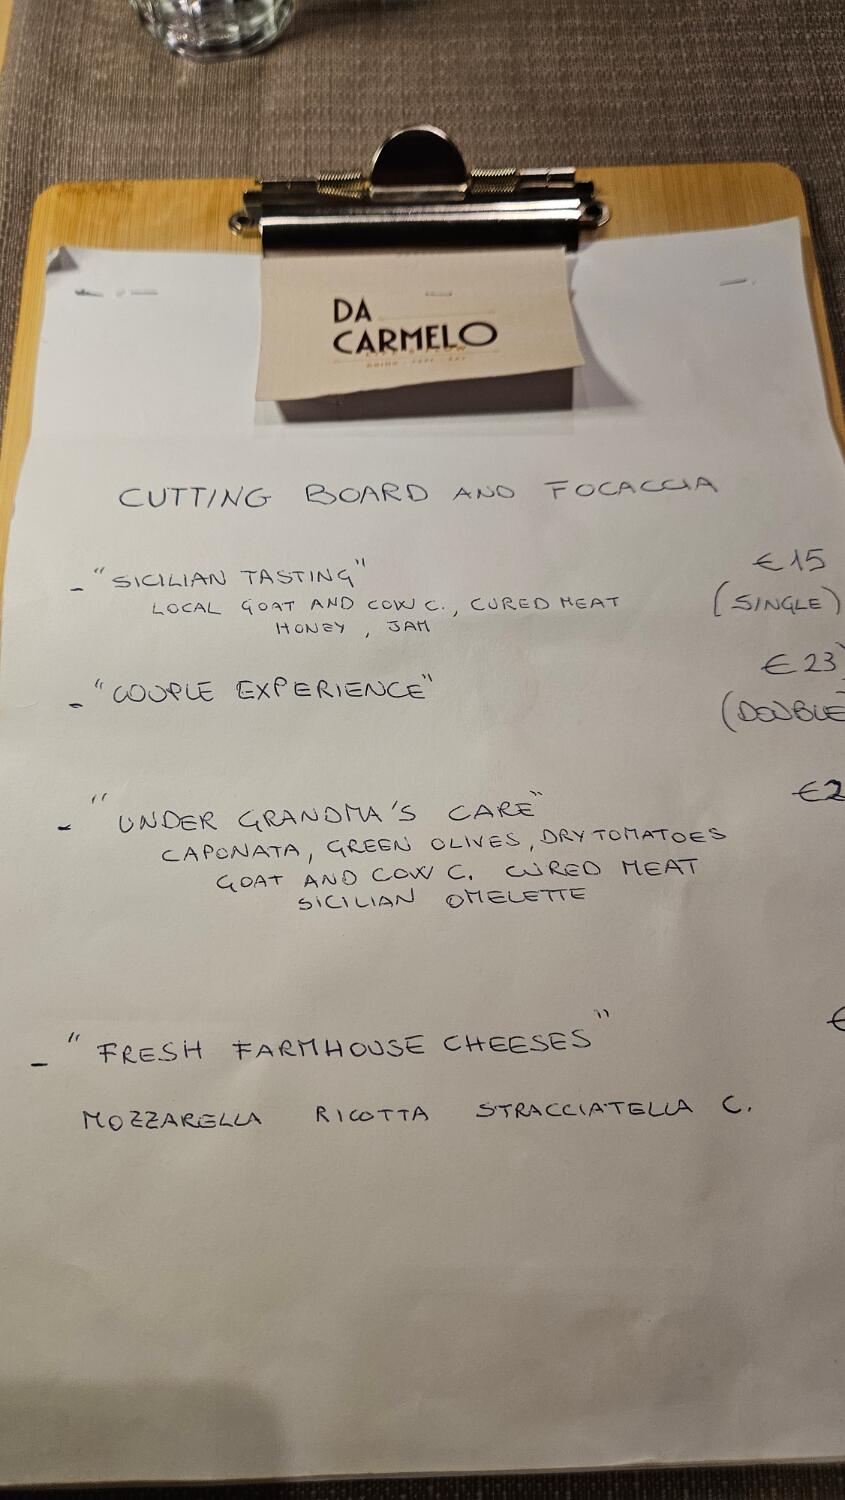 DA
CARMELO
CUTTING BOARD AND FOCACCIA
- "SICILIAN TASTING" €15
LOCAL GOAT AND COW C., CURED MEAT (SINGLE)
HONEY, JAM
- "COUPLE EXPERIENCE" €23
(DOUBLE
- "UNDER GRANDMA'S CARE" €2
CAPONATA, GREEN OLIVES, DRY TOMATOES
GOAT AND COW C. CURED MEAT
SICILIAN OMELETTE
- "FRESH FARMHOUSE CHEESES" €
MOZZARELLA RICOTTA STRACCIATELLA C.